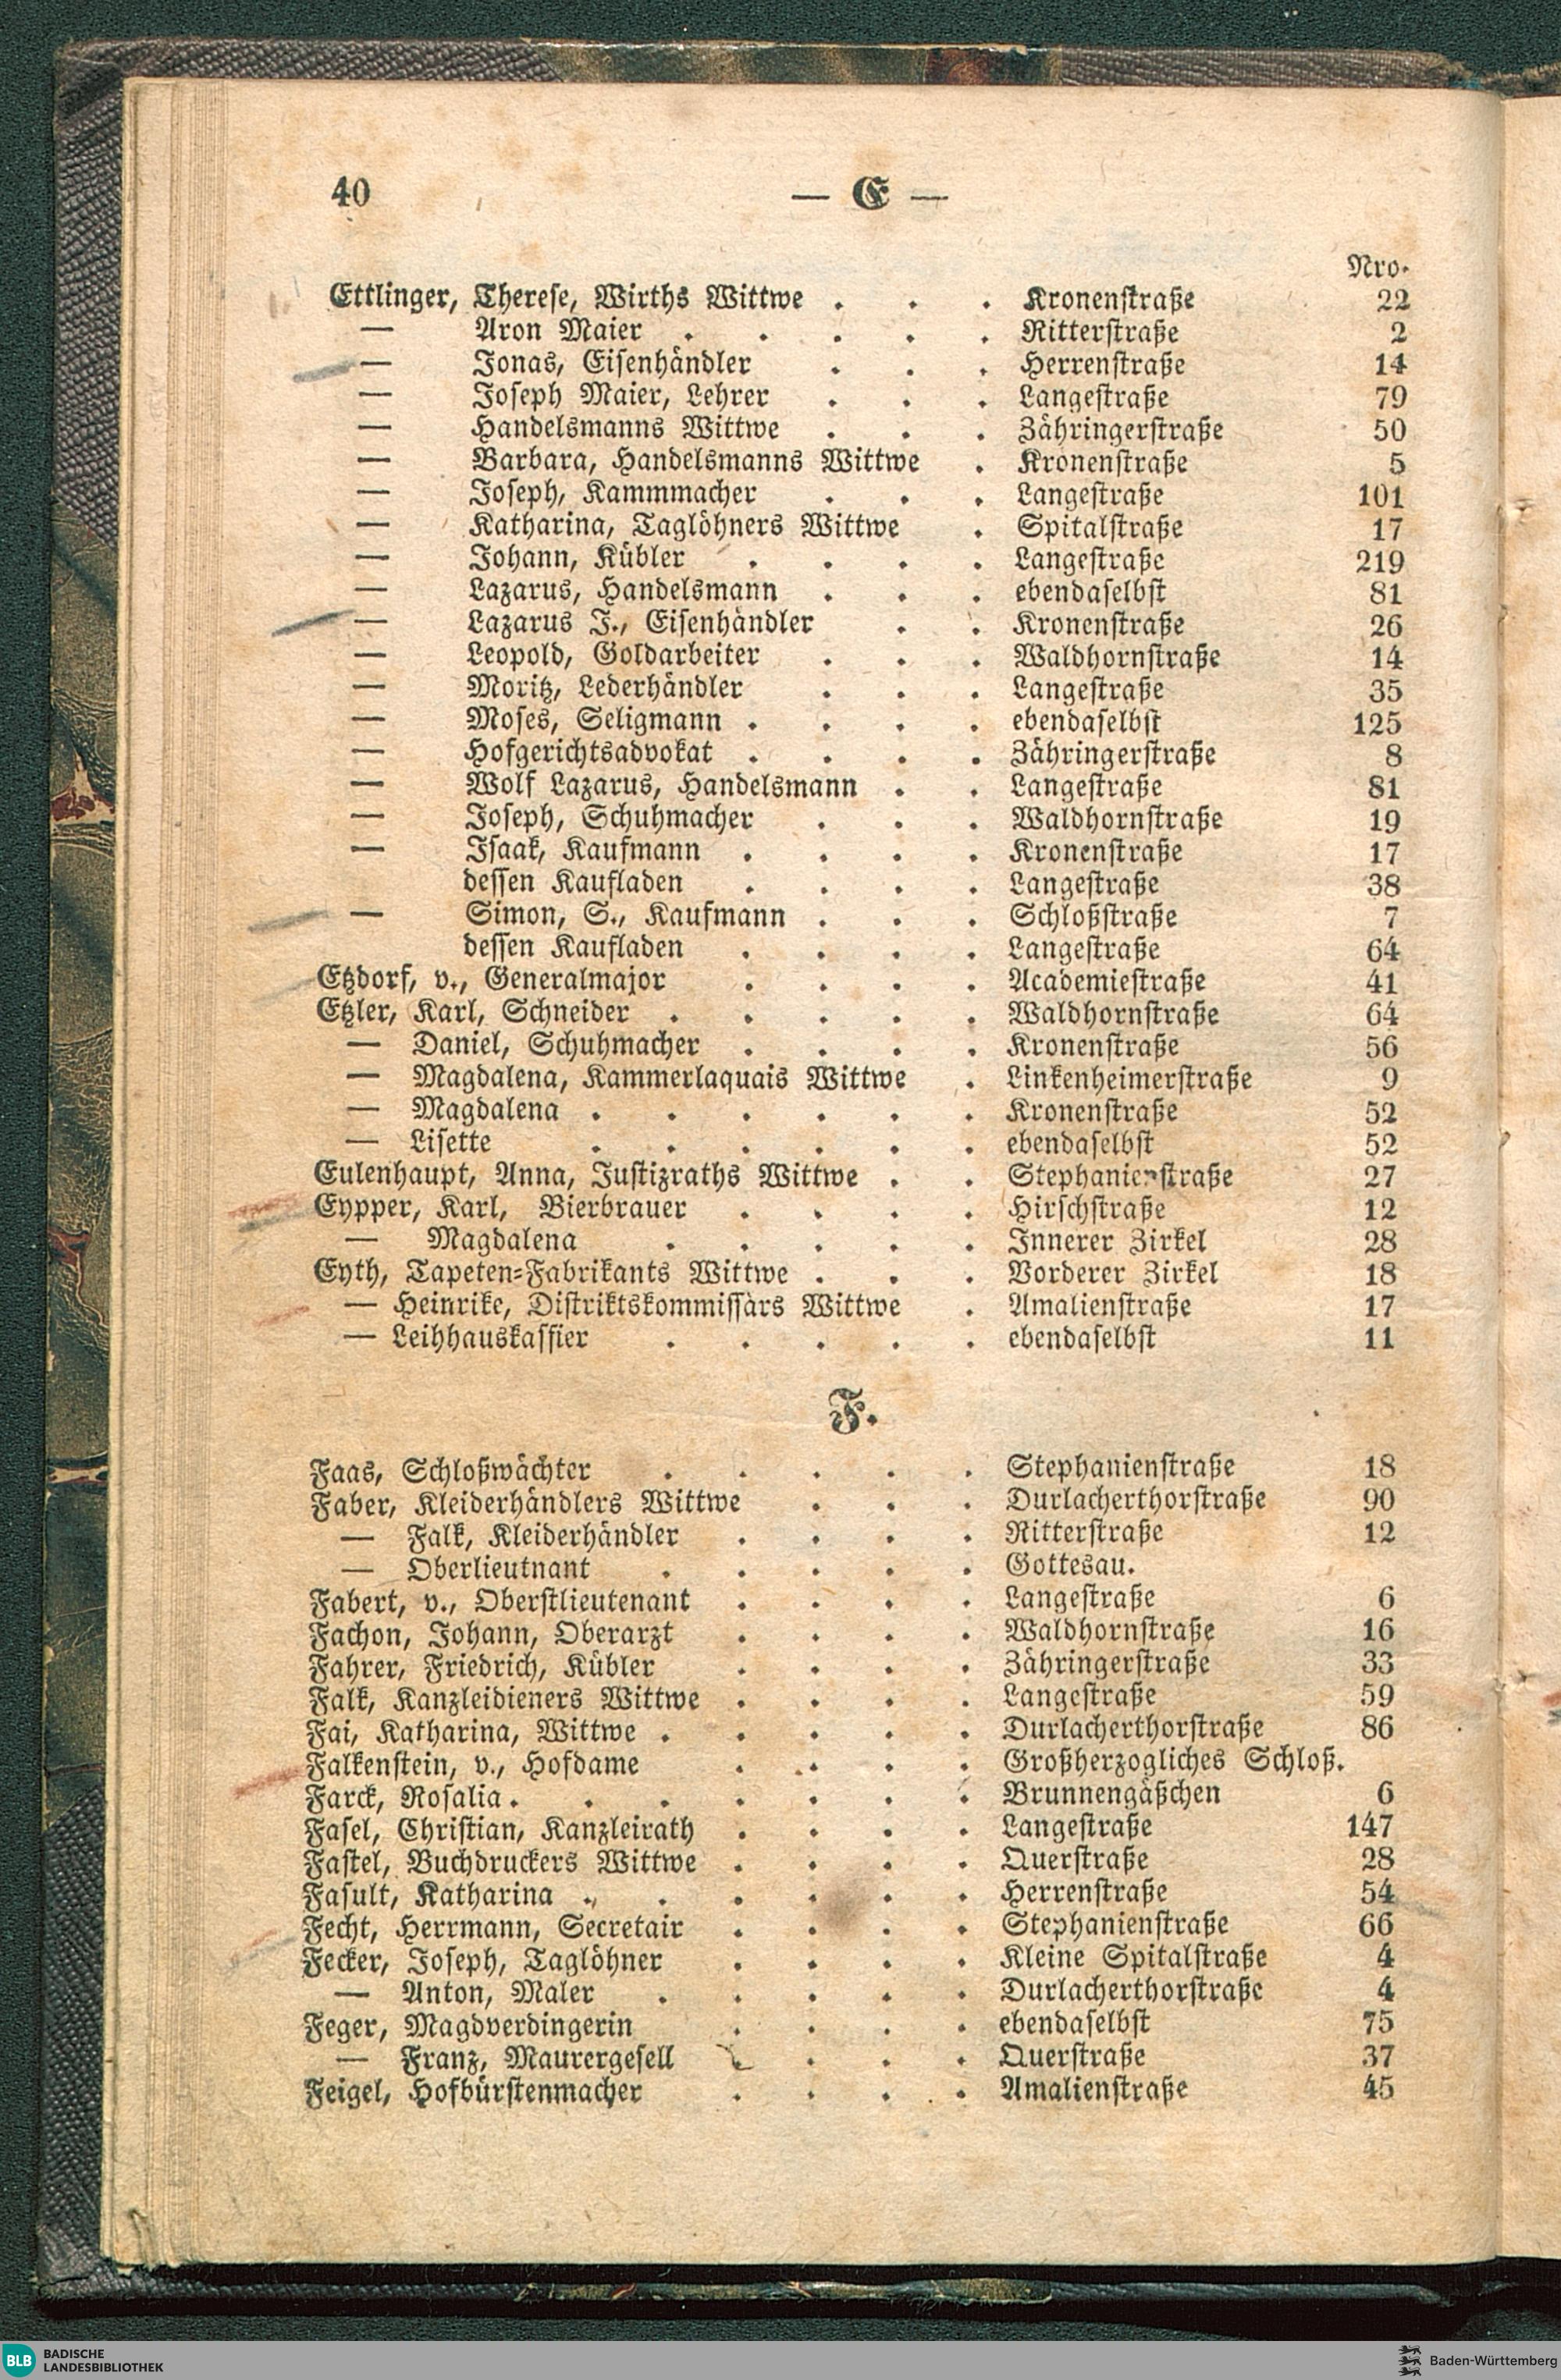 40
— E —
Nro.
Ettlinger, Therese, Wirths Wittwe . . . Kronenstraße 22
— Aron Maier . . . . . Ritterstraße 2
— Jonas, Eisenhändler . . . Herrenstraße 14
— Joseph Maier, Lehrer . . . Langestraße 79
— Handelsmanns Wittwe . . . Zähringerstraße 50
— Barbara, Handelsmanns Wittwe . Kronenstraße 5
— Joseph, Kammmacher . . . Langestraße 101
— Katharina, Taglöhners Wittwe . Spitalstraße 17
— Johann, Kübler . . . . Langestraße 219
— Lazarus, Handelsmann . . . ebendaselbst 81
— Lazarus J., Eisenhändler . . Kronenstraße 26
— Leopold, Goldarbeiter . . . Waldhornstraße 14
— Moritz, Lederhändler . . . Langestraße 35
— Moses, Seligmann . . . . ebendaselbst 125
— Hofgerichtsadvokat . . . . Zähringerstraße 8
— Wolf Lazarus, Handelsmann . . Langestraße 81
— Joseph, Schuhmacher . . . Waldhornstraße 19
— Isaak, Kaufmann . . . . Kronenstraße 17
dessen Kaufladen . . . . Langestraße 38
— Simon, S., Kaufmann . . . Schloßstraße 7
dessen Kaufladen . . . . Langestraße 64
Etzdorf, v., Generalmajor . . . . Academiestraße 41
Etzler, Karl, Schneider . . . . . Waldhornstraße 64
— Daniel, Schuhmacher . . . . Kronenstraße 56
— Magdalena, Kammerlaquais Wittwe . Linkenheimerstraße 9
— Magdalena . . . . . . Kronenstraße 52
— Lisette . . . . . . ebendaselbst 52
Eulenhaupt, Anna, Justizraths Wittwe . . Stephanienstraße 27
Eypper, Karl, Bierbrauer . . . . Hirschstraße 12
— Magdalena . . . . . Innerer Zirkel 28
Eyth, Tapeten-Fabrikants Wittwe . . . Vorderer Zirkel 18
— Heinrike, Distriktskommissärs Wittwe . Amalienstraße 17
— Leihhauskassier . . . . . ebendaselbst 11
F.
Faas, Schloßwächter . . . . . Stephanienstraße 18
Faber, Kleiderhändlers Wittwe . . . Durlacherthorstraße 90
— Falk, Kleiderhändler . . . . Ritterstraße 12
— Oberlieutnant . . . . . Gottesau.
Fabert, v., Oberstlieutenant . . . . Langestraße 6
Fachon, Johann, Oberarzt . . . . Waldhornstraße 16
Fahrer, Friedrich, Kübler . . . . Zähringerstraße 33
Falk, Kanzleidieners Wittwe . . . . Langestraße 59
Fai, Katharina, Wittwe . . . . . Durlacherthorstraße 86
Falkenstein, v., Hofdame . . . . Großherzogliches Schloß.
Farck, Rosalia . . . . . . . Brunnengäßchen 6
Fasel, Christian, Kanzleirath . . . . Langestraße 147
Fastel, Buchdruckers Wittwe . . . . Querstraße 28
Fasult, Katharina . . . . . . Herrenstraße 54
Fecht, Herrmann, Secretair . . . . Stephanienstraße 66
Fecker, Joseph, Taglöhner . . . . Kleine Spitalstraße 4
— Anton, Maler . . . . . Durlacherthorstraße 4
Feger, Magdverdingerin . . . . ebendaselbst 75
— Franz, Maurergesell . . . . Querstraße 37
Feigel, Hofbürstenmacher . . . . Amalienstraße 45
BLB BADISCHE
LANDESBIBLIOTHEK
Baden-Württemberg